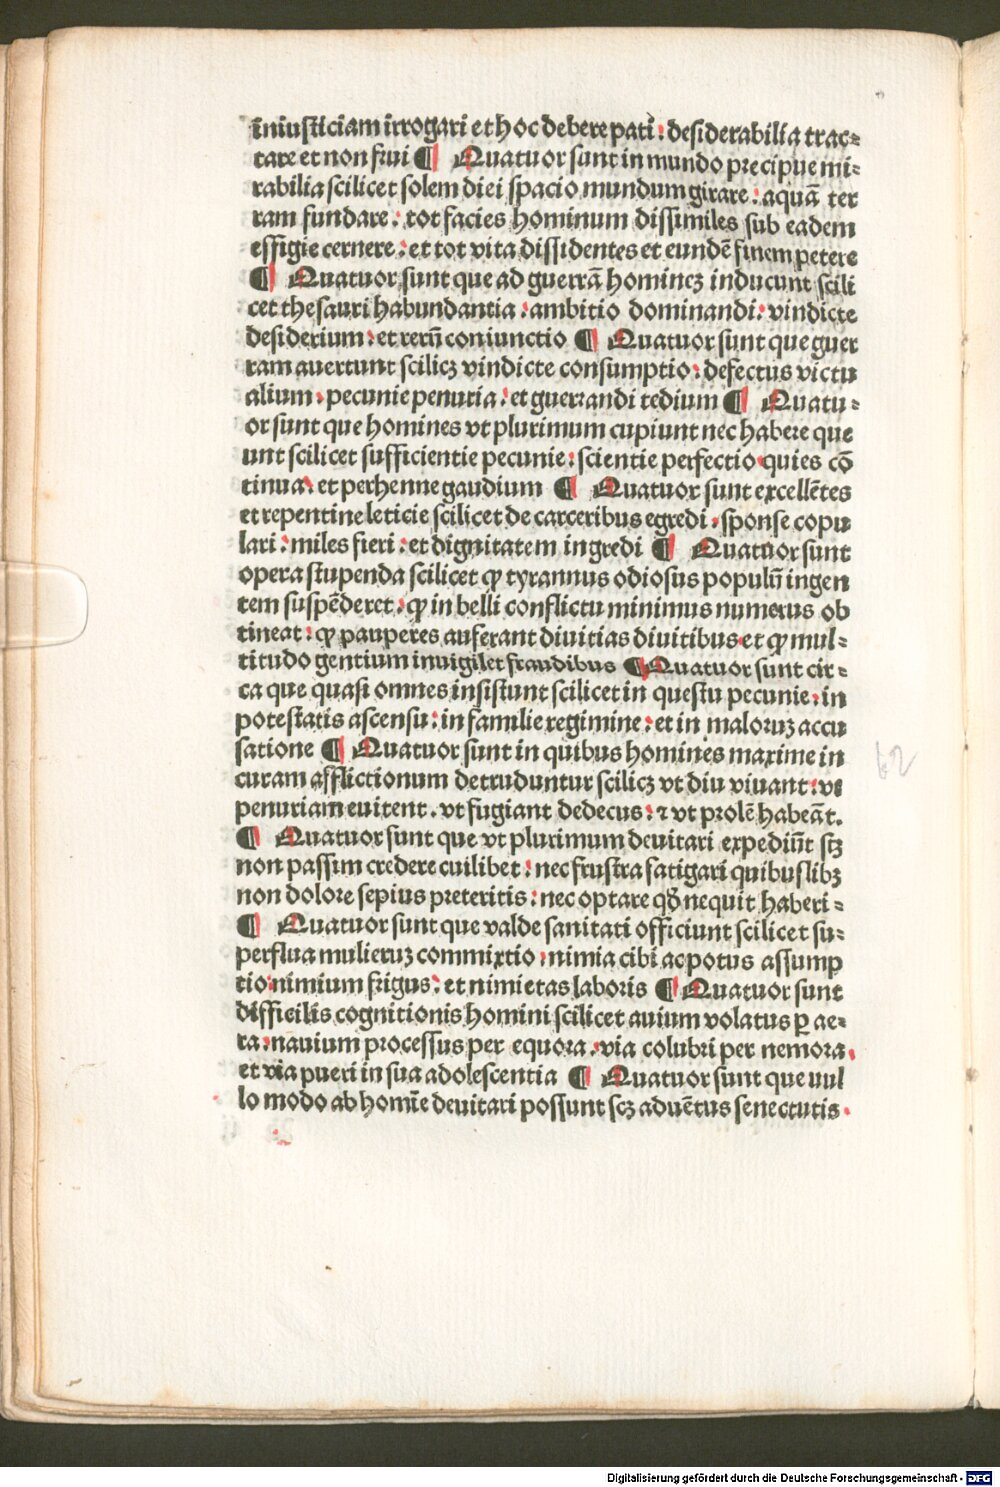 iniusticiam irrogari et hoc debere pati : desiderabilia trac-
tare et non frui ¶ Quatuor sunt in mundo precipue mi-
rabilia scilicet solem diei spacio mundum girare : aquā ter
ram fundare : tot facies hominum dissimiles sub eadem
effigie cernere : et tot vita dissidentes et eundē finem petere
¶ Quatuor sunt que ad guerrā homineꝫ inducunt scili
cet thesauri habundantia : ambitio dominandi : vindicte
desiderium : et rerū coniunctio ¶ Quatuor sunt que guer
ram auertunt scilicꝫ vindicte consumptio : defectus victu
alium : pecunie penuria : et guerrandi tedium ¶ Quatu-
or sunt que homines vt plurimum cupiunt nec habere que
unt scilicet sufficientie pecunie : scientie perfectio quies cō
tinua : et perhenne gaudium ¶ Quatuor sunt excellētes
et repentine leticie scilicet de carceribus egredi : sponse copu
lari : miles fieri : et dignitatem ingredi ¶ Quatuor sunt
opera stupenda scilicet ꝙ tyrannus odiosus populū ingen
tem suspēderet : ꝙ in belli conflictu minimus numerus ob
tineat : ꝙ pauperes auferant diuitias diuitibus et ꝙ mul-
titudo gentium inuigilet fraudibus ¶ Quatuor sunt cir-
ca que quasi omnes insistunt scilicet in questu pecunie : in
potestatis ascensu : in familie regimine : et in maloruꝫ accu
satione ¶ Quatuor sunt in quibus homines maxime in
curam afflictionum detruduntur scilicꝫ vt diu viuant : vt
penuriam euitent . vt fugiant dedecus : ⁊ vt prolē habeāt.
¶ Quatuor sunt que vt plurimum deuitari expediūt stꝫ
non passim credere cuilibet : nec frustra fatigari quibuslibꝫ
non dolore sepius preteritis : nec optare qđ nequit haberi -
¶ Quatuor sunt que valde sanitati officiunt scilicet su-
perflua mulieruꝫ commixtio : nimia cibi ac potus assump
tio nimium frigus : et nimietas laboris ¶ Quatuor sunt
difficilis cognitionis homini scilicet auium volatus ꝑ ae-
ra : nauium processus per equora . via colubri per nemora .
et via pueri in sua adolescentia ¶ Quatuor sunt que nul
lo modo ab homīe deuitari possunt scꝫ aduētus senectutis .
62
Digitalisierung gefördert durch die Deutsche Forschungsgemeinschaft - DFG